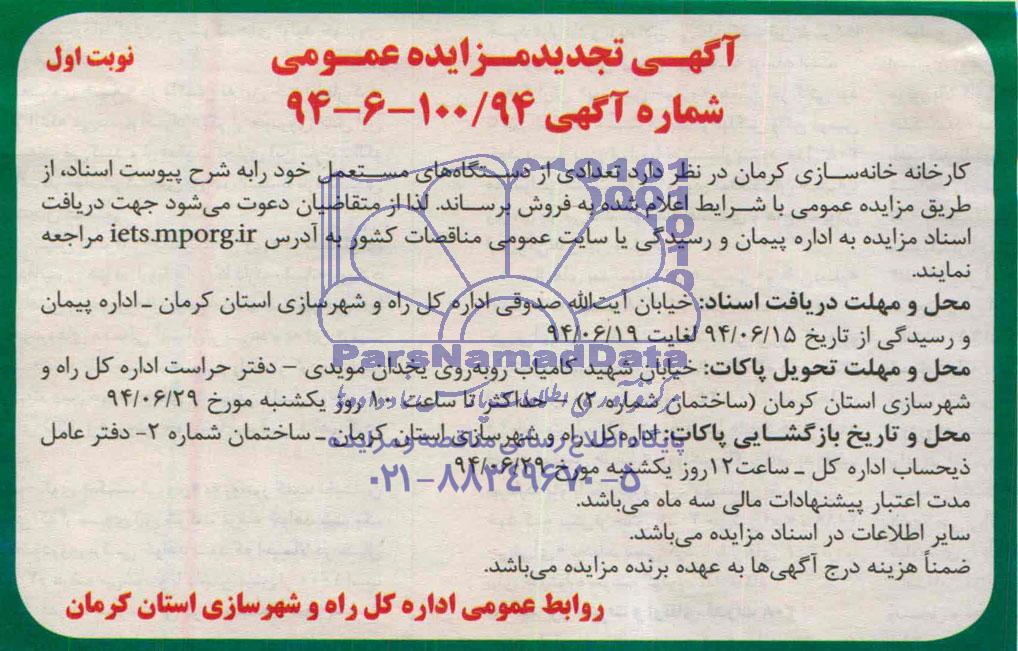 آگهی تجدید مزایده عمومی
نوبت اول
شماره آگهی ۹۴-۶-۱۰۰/۹۴
کارخانه خانه‌سازی کرمان در نظر دارد تعدادی از دستگاه‌های مستعمل خود رابه شرح پیوست اسناد، از
طریق مزایده عمومی با شرایط اعلام شده به فروش برساند. لذا از متقاضیان دعوت می‌شود جهت دریافت
اسناد مزایده به اداره پیمان و رسیدگی یا سایت عمومی مناقصات کشور به آدرس iets.mporg.ir مراجعه
نمایند.
محل و مهلت دریافت اسناد: خیابان آیت‌الله صدوقی اداره کل راه و شهرسازی استان کرمان ـ اداره پیمان
و رسیدگی از تاریخ ۹۴/۰۶/۱۵ لغایت ۹۴/۰۶/۱۹
ParsNamadData
محل و مهلت تحویل پاکات: خیابان شهید کامیاب روبه‌روی یخدان مویدی - دفتر حراست اداره کل راه و
شهرسازی استان کرمان (ساختمان شماره ۲) - حداکثر تا ساعت ۱۰ روز یکشنبه مورخ ۹۴/۰۶/۲۹
محل و تاریخ بازگشایی پاکات: اداره‌کل راه و شهرسازی استان کرمان ـ ساختمان شماره ۲- دفتر عامل
پایگاه اطلاع رسانی مناقصه و مزایده
ذیحساب اداره کل ـ ساعت۱۲روز یکشنبه مورخ ۹۴/۰۶/۲۹
۰۲۱-۸۸۳۴۹۶۷۰-۵
مدت اعتبار پیشنهادات مالی سه ماه می‌باشد.
سایر اطلاعات در اسناد مزایده می‌باشد.
ضمناً هزینه درج آگهی‌ها به عهده برنده مزایده می‌باشد.
روابط عمومی اداره کل راه و شهرسازی استان کرمان